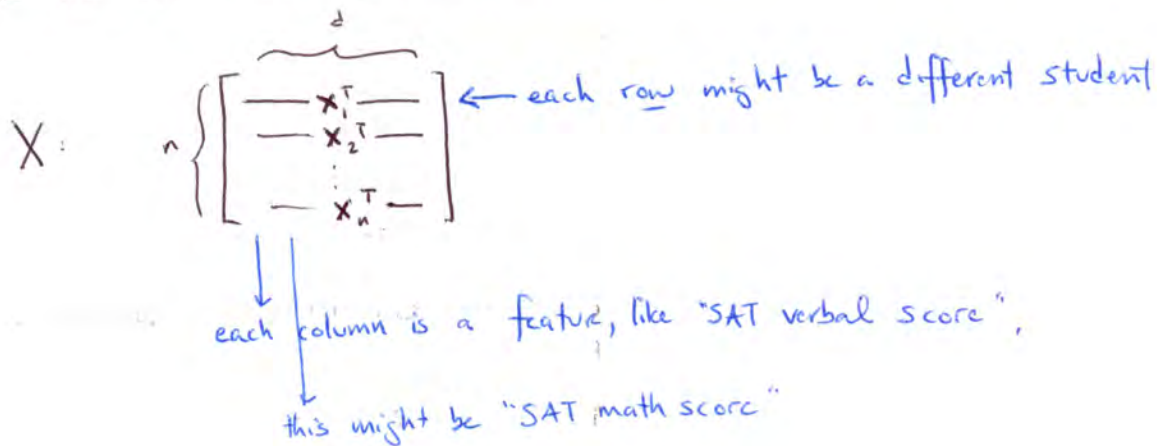 d
X : n
x₁ᵀ ← each row might be a different student
x₂ᵀ
⋮
xₙᵀ
each column is a feature, like "SAT verbal score",
this might be "SAT math score"